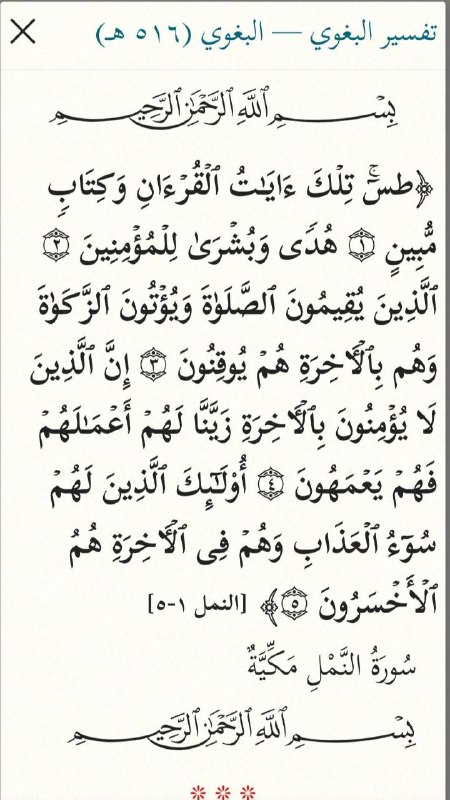 تفسير البغوي — البغوي (٥١٦ هـ)
بِسْمِ ٱللَّهِ ٱلرَّحْمَٰنِ ٱلرَّحِيمِ
﴿طسۤۚ تِلۡكَ ءَایَـٰتُ ٱلۡقُرۡءَانِ وَكِتَابࣲ
مُّبِینٍ ١ هُدࣰى وَبُشۡرَىٰ لِلۡمُؤۡمِنِینَ ٢
ٱلَّذِینَ یُقِیمُونَ ٱلصَّلَوٰةَ وَیُؤۡتُونَ ٱلزَّكَوٰةَ
وَهُم بِٱلۡـَٔاخِرَةِ هُمۡ یُوقِنُونَ ٣ إِنَّ ٱلَّذِینَ
لَا یُؤۡمِنُونَ بِٱلۡـَٔاخِرَةِ زَیَّنَّا لَهُمۡ أَعۡمَـٰلَهُمۡ
فَهُمۡ یَعۡمَهُونَ ٤ أُو۟لَـٰۤىِٕكَ ٱلَّذِینَ لَهُمۡ
سُوۤءُ ٱلۡعَذَابِ وَهُمۡ فِی ٱلۡـَٔاخِرَةِ هُمُ
ٱلۡأَخۡسَرُونَ ٥﴾ [النمل ١-٥]
سُورَةُ النَّمْلِ مَكِّيَّةٌ
بِسْمِ ٱللَّهِ ٱلرَّحْمَٰنِ ٱلرَّحِيمِ
* * *